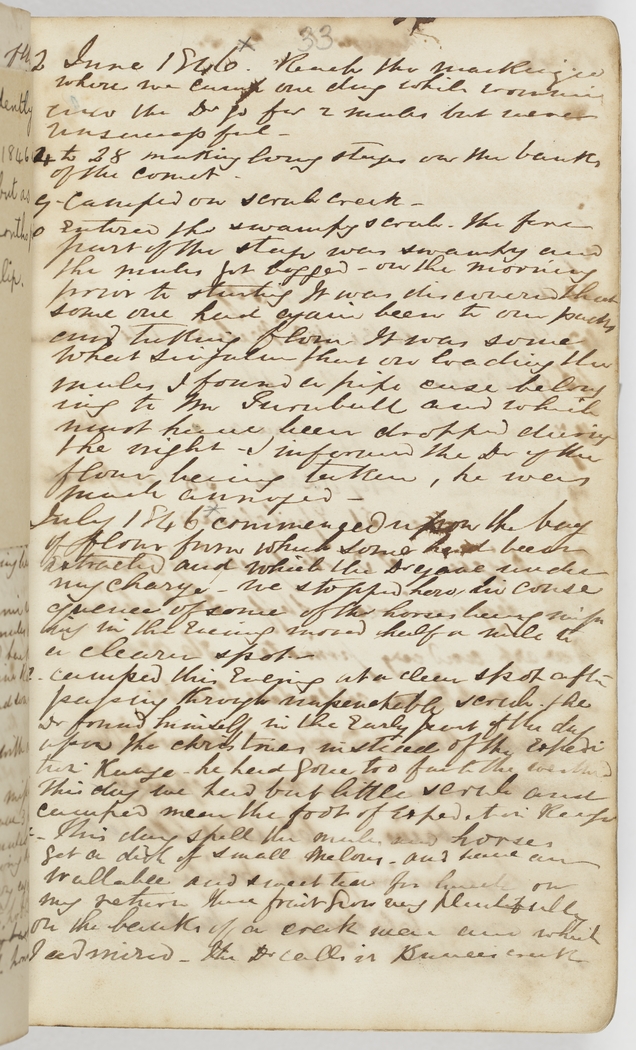 33
2 June 1846. Reach the Mackenzie
where we camp one day while
the Dr go for 2 mules but never
unsuccessful -
24 to 28 making long stages on the banks
of the comet -
9 - Camped on scrub creek -
0 Entered the swampy scrub. The fore
part of the stage was swampy and
the mules got bogged - on the morning
prior to starting It was discovered that
some one had again been to our packs
and taking flour. It was some
what singular that on loading the
mules I found a pipe case belong
ing to Mr Turnbull and which
must have been dropped during
the night - I informed the Dr of the
flour being taken, he was
much annoyed -
July 1846 commenced upon the bag
of flour from which some had been
extracted and which the Dr gave under
my charge - we stopped here in conse
quence of some of the horses being miss
ing in the Evening moved half a mile to
a clearer spot -
- camped this Evening at a clear spot after
passing through impenetrable scrub. The
Dr found himself in the Early part of the day
upon the christmas instead of the Expedi
tion Range - he had gone too far to the westward
this day we had but little scrub and
camped near the foot of Expedition Range
- This day spell the mules and horses
get a dish of small melons - and have
Wallabee and sweet tea for lunch on
my return These fruit growing plentifully
on the banks of a creek near and which
I admired - the Dr calls it creek
dently
1846
but as
months
lip.